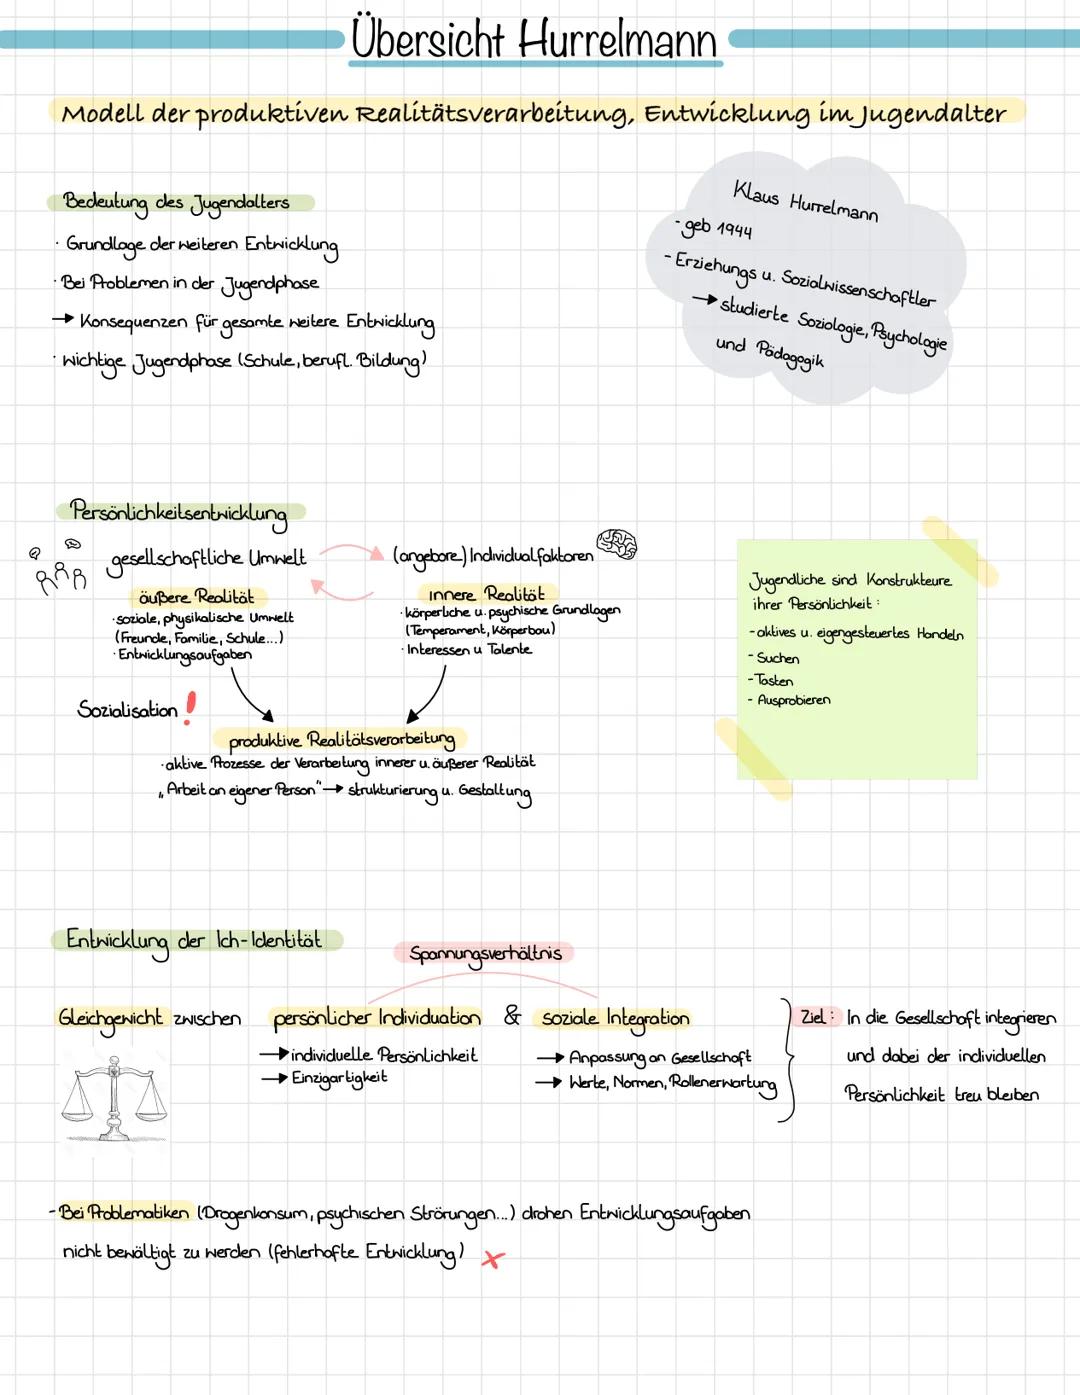 Übersicht Hurrelmann
Modell der produktiven Realitätsverarbeitung, Entwicklung im Jugendalter
Bedeutung des Jugendalters
· Grundlage der weiteren Entwicklung
· Bei Problemen in der Jugendphase
→ Konsequenzen für gesamte weitere Entwicklung
· wichtige Jugendphase (Schule, berufl. Bildung)
Klaus Hurrelmann
- geb 1944
- Erziehungs u. Sozialwissenschaftler
→ studierte Soziologie, Psychologie
und Pädagogik
Persönlichkeitsentwicklung
gesellschaftliche Umwelt
(angebore.) Individualfaktoren
äußere Realität
· soziale, physikalische Umwelt
(Freunde, Familie, Schule...)
· Entwicklungsaufgaben
innere Realität
· körperliche u. psychische Grundlagen
(Temperament, Körperbau)
· Interessen u Talente
Sozialisation !
produktive Realitätsverarbeitung
· aktive Prozesse der Verarbeitung innerer u. äußerer Realität
„Arbeit an eigener Person" → strukturierung u. Gestaltung
Jugendliche sind Konstrukteure
ihrer Persönlichkeit :
- aktives u. eigengesteuertes Handeln
- Suchen
- Tasten
- Ausprobieren
Entwicklung der Ich-Identität
Spannungsverhältnis
Gleichgewicht zwischen persönlicher Individuation & soziale Integration
→ individuelle Persönlichkeit
→ Einzigartigkeit
→ Anpassung an Gesellschaft
→ Werte, Normen, Rollenerwartung
Ziel : In die Gesellschaft integrieren
und dabei der individuellen
Persönlichkeit treu bleiben
- Bei Problematiken (Drogenkonsum, psychischen Strörungen...) drohen Entwicklungsaufgaben
nicht bewältigt zu werden (fehlerhafte Entwicklung)